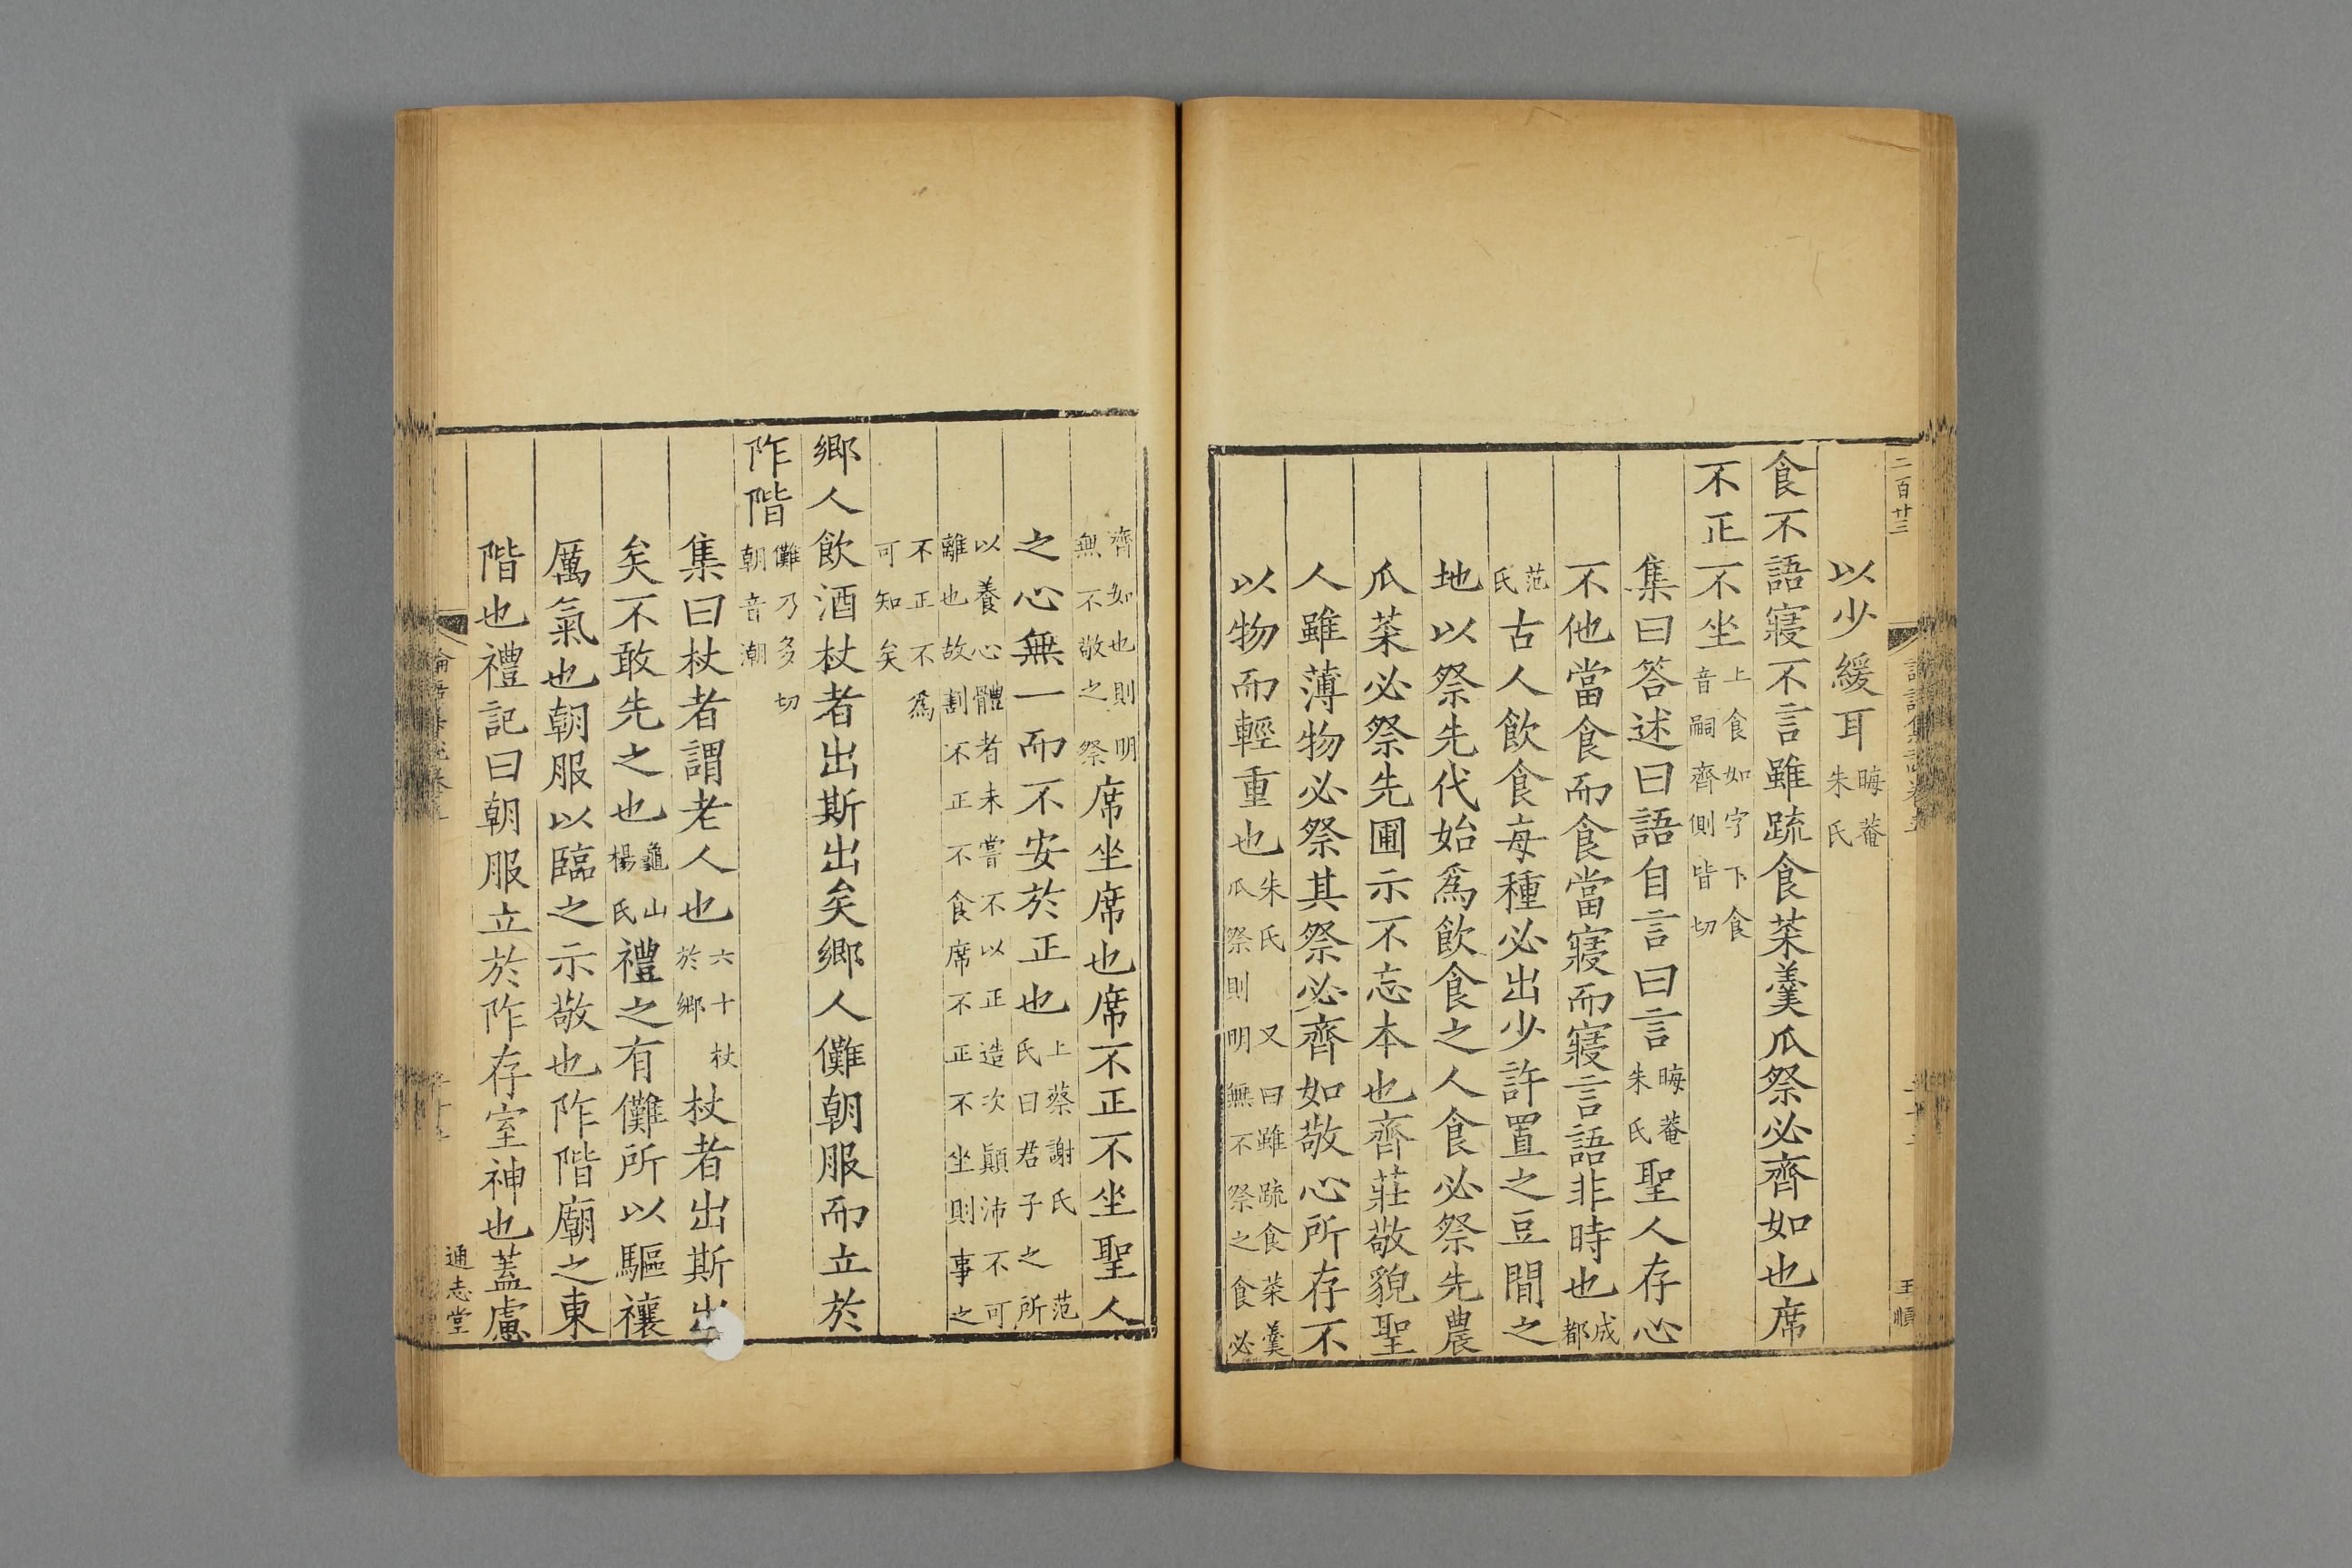 二百廿三
王順
以少緩耳晦菴朱氏
食不語寢不言雖疏食菜羹瓜祭必齊如也席
不正不坐上食如字下食音嗣齊側皆切
集曰答述曰語自言曰言晦菴朱氏聖人存心
不他當食而食當寢而寢言語非時也成都
范氏古人飲食每種必出少許置之豆間之
地以祭先代始為飲食之人食必祭先農
瓜菜必祭先圃示不忘本也齊莊敬貌聖
人雖薄物必祭其祭必齊如敬心所存不
以物而輕重也朱氏又曰雖疏食菜羹瓜祭則明無不祭之食必
齊如也則明無不敬之祭席坐席也席不正不坐聖人
之心無一而不安於正也上蔡謝氏范氏曰君子之所
以養心體者未嘗不以正造次顛沛不可離也故割不正不食席不正不坐則事之
不正不為可知矣
鄉人飲酒杖者出斯出矣鄉人儺朝服而立於
阼階儺乃多切朝音潮
集曰杖者謂老人也六十杖於鄉杖者出斯出
矣不敢先之也龜山楊氏禮之有儺所以驅禳
厲氣也朝服以臨之示敬也阼階廟之東
階也禮記曰朝服立於阼存室神也蓋慮
通志堂